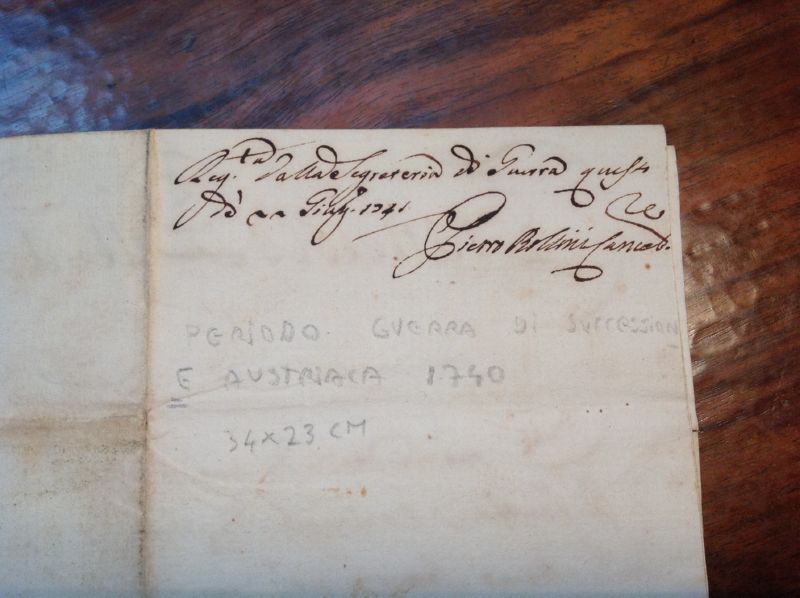 Reg.ta dalla Segreteria di Guerra questo
dì 22 Giug. 1741
Pietro Cancel.
PERIODO GUERRA DI SUCCESSION
E AUSTRIACA 1740
34x23 CM